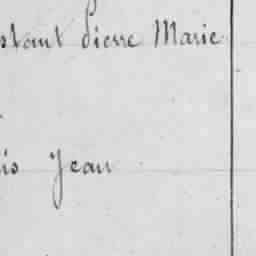 stant Pierre Marie
is Jean